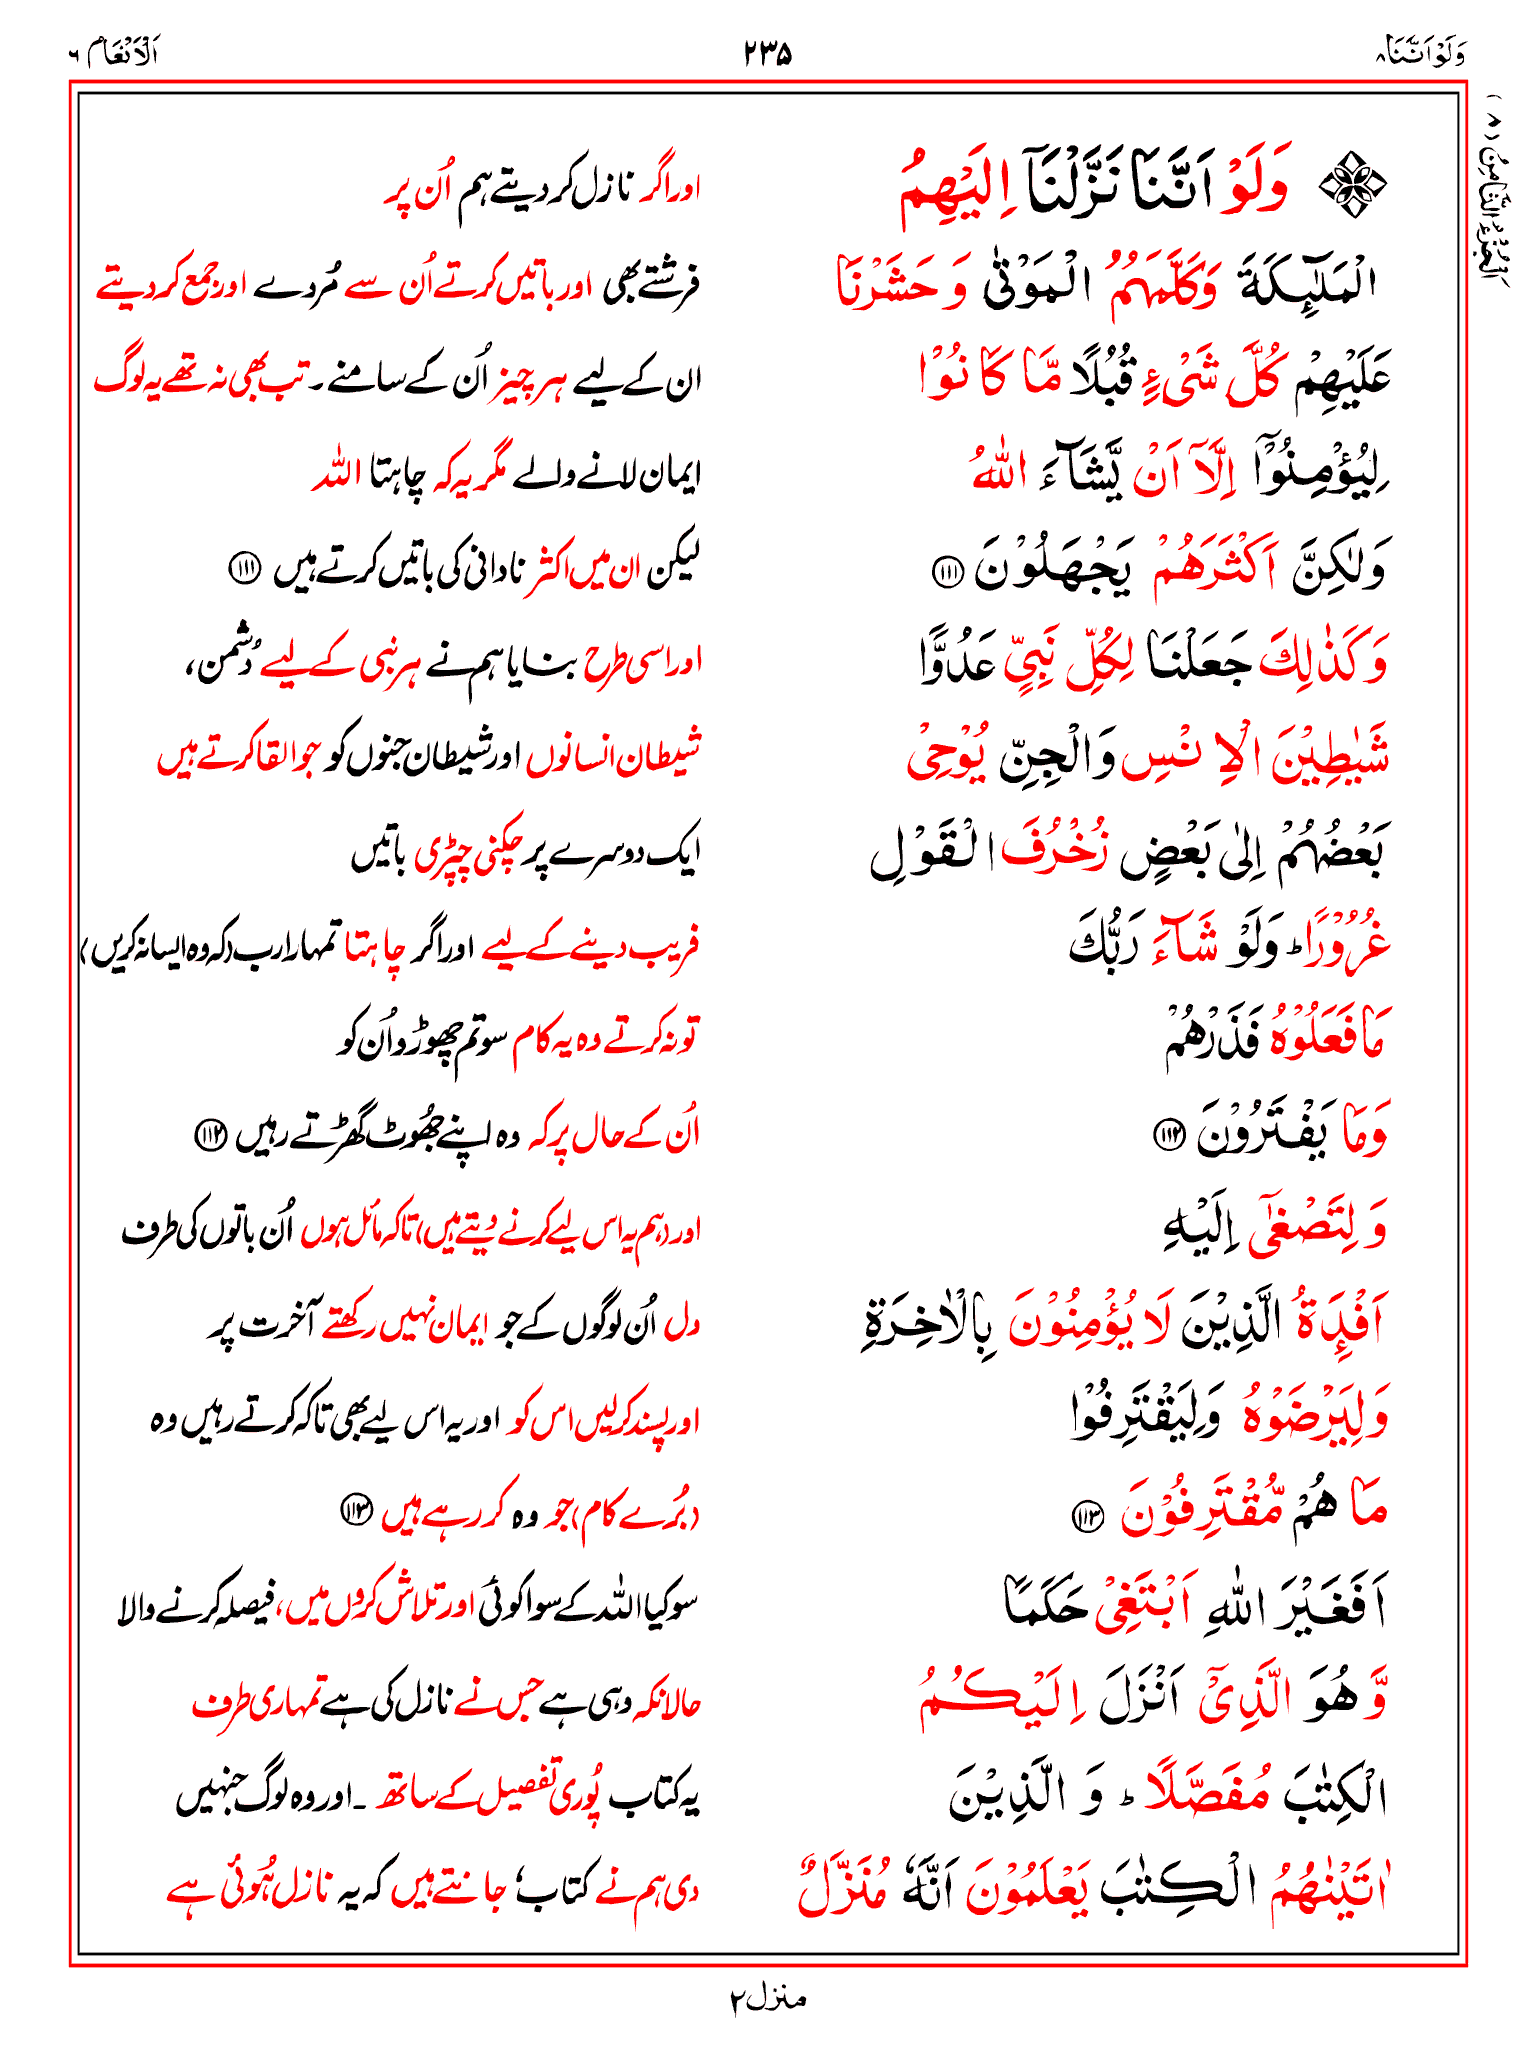 وَلَوْ اَنَّنَا ۸
۲۳۵
اَلْاَنْعَام ۶
اَلْجُزْءُ الثَّامِنُ (۸)
وَلَوْ اَنَّنَا نَزَّلْنَاۤ اِلَيْهِمُ
اور اگر نازل کر دیتے ہم اُن پر
الْمَلٰٓئِكَةَ وَكَلَّمَهُمُ الْمَوْتٰى وَ حَشَرْنَا
فرشتے بھی اور باتیں کرتے اُن سے مُردے اور جمع کر دیتے
عَلَيْهِمْ كُلَّ شَیْءٍ قُبُلًا مَّا كَانُوْا
ان کے لیے ہر چیز اُن کے سامنے ۔ تب بھی نہ تھے یہ لوگ
لِيُؤْمِنُوْۤا اِلَّاۤ اَنْ يَّشَآءَ اللّٰهُ
ایمان لانے والے مگر یہ کہ چاہتا اللہ
وَلٰكِنَّ اَكْثَرَهُمْ يَجْهَلُوْنَ ۱۱۱
لیکن ان میں اکثر نادانی کی باتیں کرتے ہیں ۱۱۱
وَكَذٰلِكَ جَعَلْنَا لِكُلِّ نَبِيٍّ عَدُوًّا
اور اسی طرح بنایا ہم نے ہر نبی کے لیے دُشمن،
شَيٰطِيْنَ الْاِنْسِ وَالْجِنِّ يُوْحِیْ
شیطان انسانوں اور شیطان جنوں کو جو القا کرتے ہیں
بَعْضُهُمْ اِلٰى بَعْضٍ زُخْرُفَ الْقَوْلِ
ایک دوسرے پر چکنی چپڑی باتیں
غُرُوْرًا ؕ وَلَوْ شَآءَ رَبُّكَ
فریب دینے کے لیے اور اگر چاہتا تمہارا رب (کہ وہ ایسا نہ کریں)
مَا فَعَلُوْهُ فَذَرْهُمْ
تو نہ کرتے وہ یہ کام سو تم چھوڑ دو اُن کو
وَمَا يَفْتَرُوْنَ ۱۱۲
اُن کے حال پر کہ وہ اپنے جھُوٹ گھڑتے رہیں ۱۱۲
وَ لِتَصْغٰۤى اِلَيْهِ
اور (ہم یہ اس لیے کرنے دیتے ہیں) تاکہ مائل ہوں اُن باتوں کی طرف
اَفْـِٕدَةُ الَّذِيْنَ لَا يُؤْمِنُوْنَ بِالْاٰخِرَةِ
دل اُن لوگوں کے جو ایمان نہیں رکھتے آخرت پر
وَلِيَرْضَوْهُ وَلِيَقْتَرِفُوْا
اور پسند کر لیں اس کو اور یہ اس لیے بھی تاکہ کرتے رہیں وہ
مَا هُمْ مُّقْتَرِفُوْنَ ۱۱۳
(بُرے کام) جو وہ کر رہے ہیں ۱۱۳
اَفَغَيْرَ اللّٰهِ اَبْتَغِیْ حَكَمًا
سو کیا اللہ کے سوا کوئی اور تلاش کروں میں، فیصلہ کرنے والا
وَّهُوَ الَّذِیْۤ اَنْزَلَ اِلَيْكُمُ
حالانکہ وہی ہے جس نے نازل کی ہے تمہاری طرف
الْكِتٰبَ مُفَصَّلًا ؕ وَ الَّذِيْنَ
یہ کتاب پُوری تفصیل کے ساتھ ۔ اور وہ لوگ جنہیں
اٰتَيْنٰهُمُ الْكِتٰبَ يَعْلَمُوْنَ اَنَّهٗ مُنَزَّلٌ
دی ہم نے کتاب، جانتے ہیں کہ یہ نازل ہُوئی ہے
منزل ۲